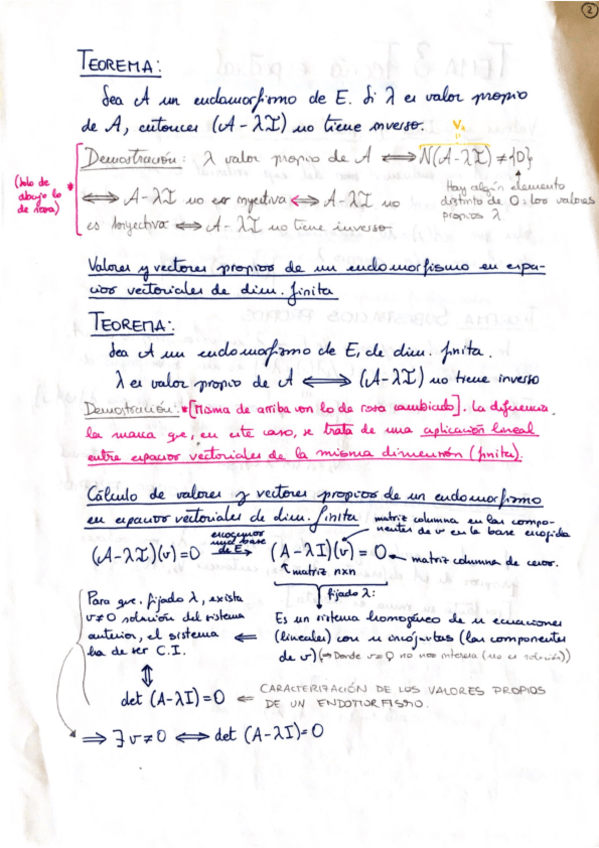 2
TEOREMA:
Sea A un endomorfismo de E. Si λ es valor propio
de A, entonces (A-λI) no tiene inverso.
Vλ
Demostración: λ valor propio de A ⟺ N(A-λI) ≠ {0}
(solo de abajo lo de rosa)
⟺ A-λI no es inyectiva ⟺ A-λI no
Hay algún elemento
distinto de 0: los valores
propios λ.
es biyectiva ⟺ A-λI no tiene inverso
Valores y vectores propios de un endomorfismo en espa-
cios vectoriales de dim. finita
TEOREMA:
Sea A un endomorfismo de E, de dim. finita.
λ es valor propio de A ⟺ (A-λI) no tiene inverso
Demostración: *[Misma de arriba con lo de rosa cambiado]. La diferencia
la marca que, en este caso, se trata de una aplicación lineal
entre espacios vectoriales de la misma dimensión (finita).
Cálculo de valores y vectores propios de un endomorfismo
en espacios vectoriales de dim. finita
matriz columna en las compo-
nentes de v en la base escogida
(A-λI)(v)=0 escogemos una base de E ⟹ (A-λI)(v)=0 ← matriz columna de ceros.
matriz nxn
fijado λ:
Para que, fijado λ, exista
v≠0 solución del sistema
anterior, el sistema
ha de ser C.I.
⟸ Es un sistema homogéneo de n ecuaciones
(lineales) con n incógnitas (las componentes
de v) (⇒ Donde v=0 no nos interesa (no es solución))
⇕
det (A-λI)=0 ⟸ CARACTERIZACIÓN DE LOS VALORES PROPIOS
DE UN ENDOMORFISMO.
⟹ ∃ v≠0 ⟺ det (A-λI)=0